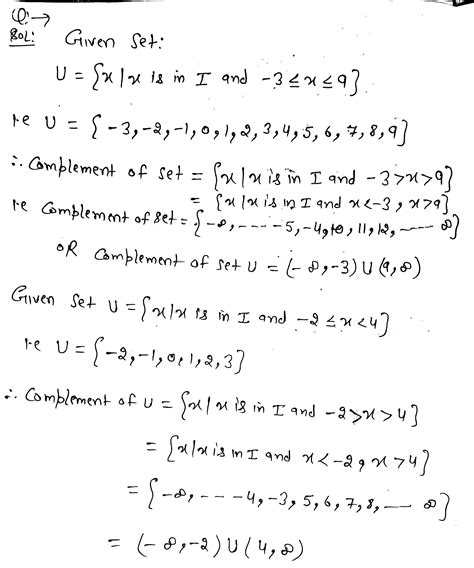 Q:→
SOL: Given Set:
U = {x | x is in I and -3 ≤ x ≤ 9}
ie U = {-3, -2, -1, 0, 1, 2, 3, 4, 5, 6, 7, 8, 9}
∴ Complement of set = {x | x is in I and -3 > x > 9}
= {x | x is in I and x < -3, x > 9}
ie Complement of set = {-∞, ---- -5, -4, 10, 11, 12, ---- ∞}
OR Complement of set U = (-∞, -3) U (9, ∞)
Given Set U = {x | x is in I and -2 ≤ x < 4}
ie U = {-2, -1, 0, 1, 2, 3}
∴ Complement of U = {x | x is in I and -2 > x > 4}
= {x | x is in I and x < -2, x > 4}
= {-∞, --- -4, -3, 5, 6, 7, 8, --- ∞}
= (-∞, -2) U (4, ∞)